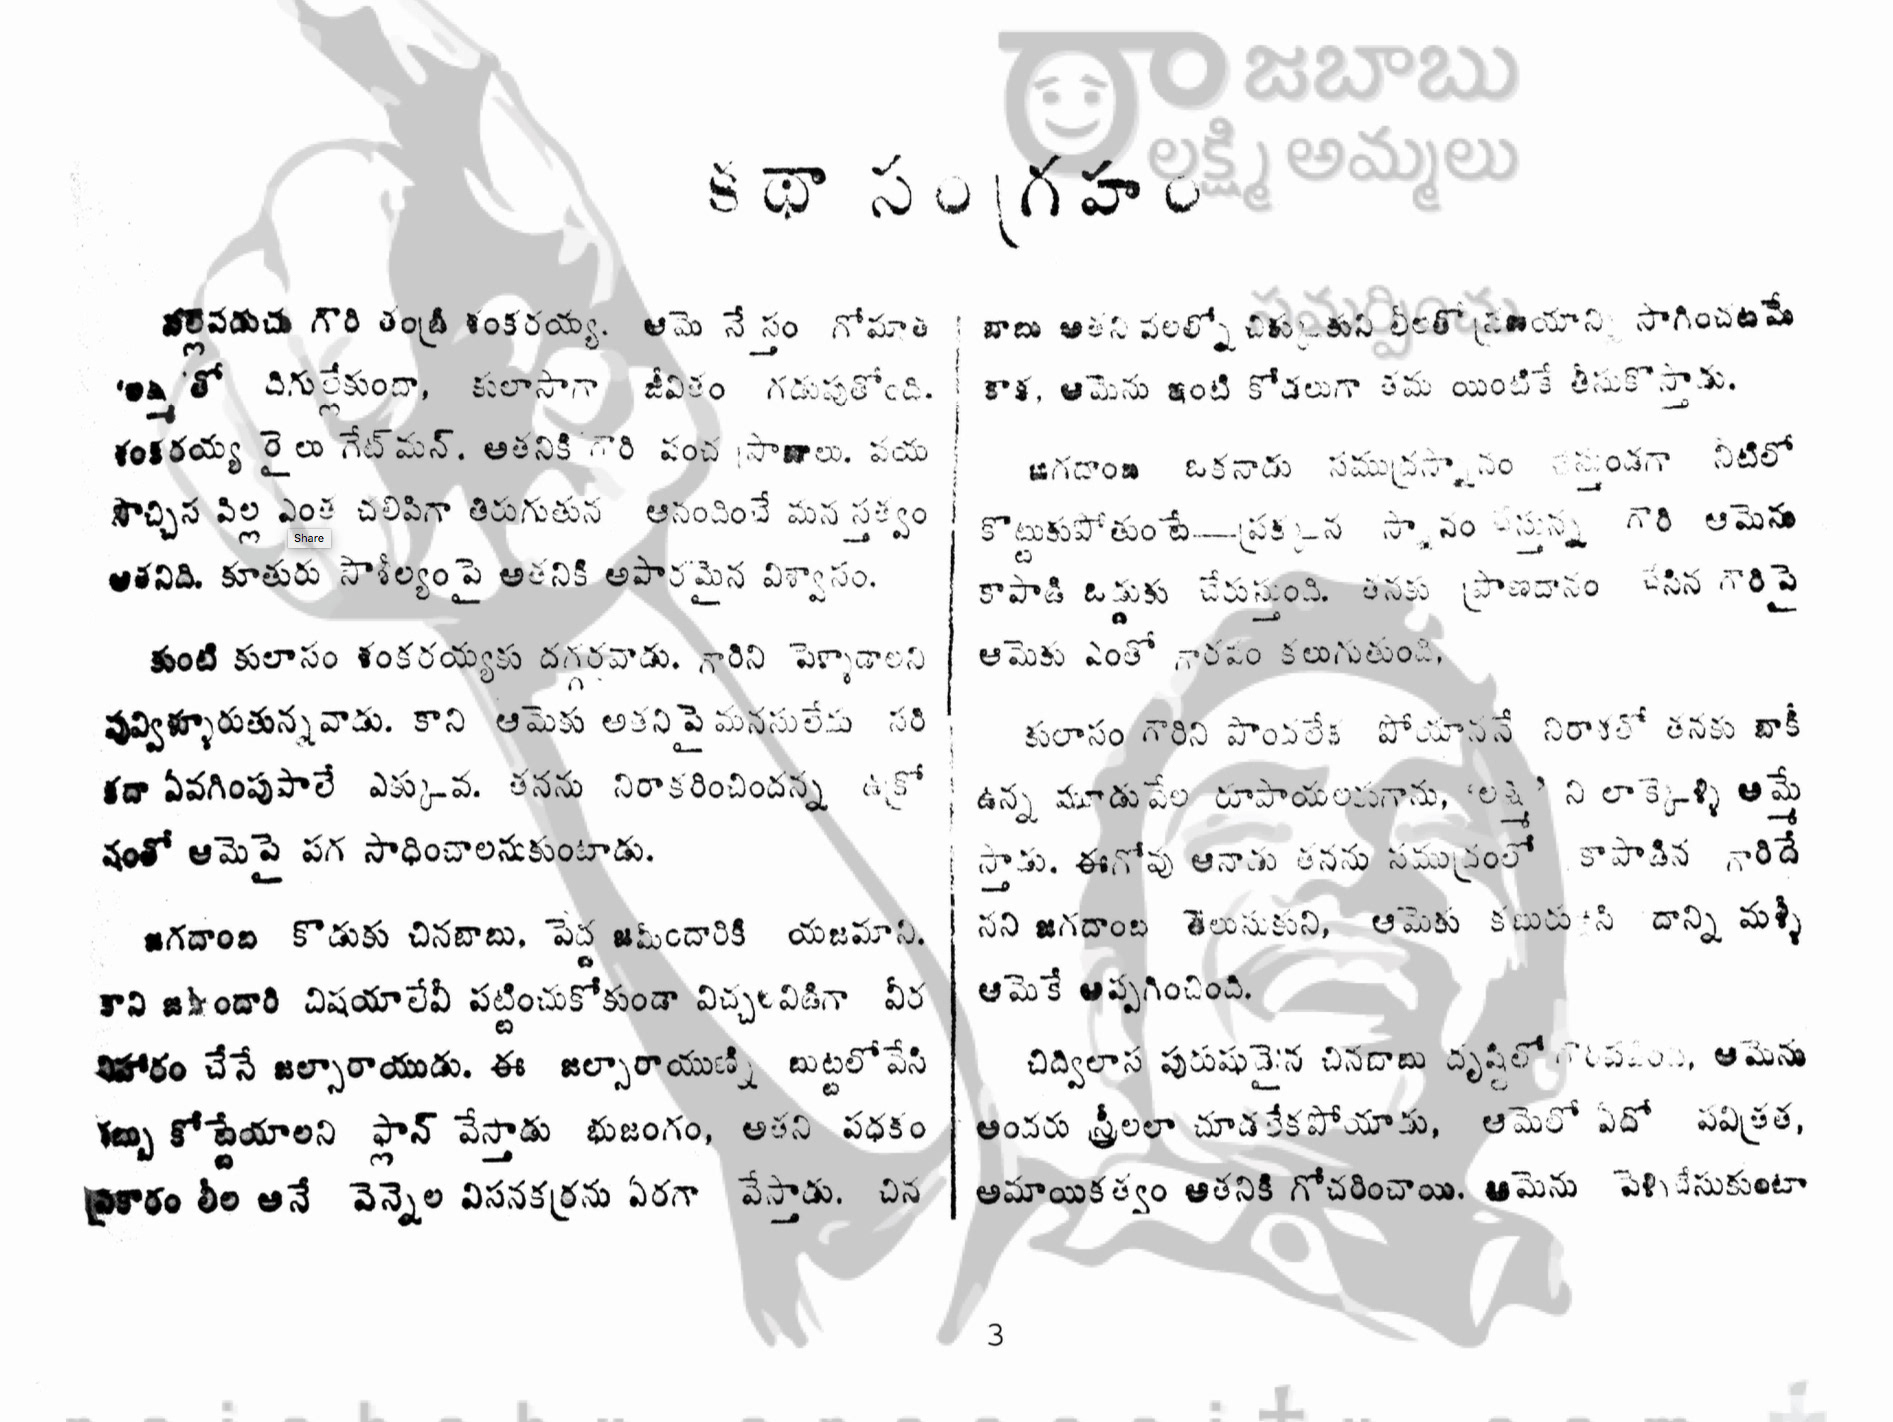 రాజబాబు
లక్ష్మి అమ్మలు
సమర్పించు
కథా సంగ్రహం
పల్లెపడుచు గౌరి తండ్రి శంకరయ్య. ఆమె నేస్తం గోమాత
'లక్ష్మి'తో దిగుల్లేకుండా, కులాసాగా జీవితం గడుపుతోంది.
శంకరయ్య రైలు గేట్‌మన్. అతనికి గౌరి పంచ ప్రాణాలు. వయ
సొచ్చిన పిల్ల ఎంత చలిపిగా తిరుగుతున్న ఆనందించే మనస్తత్వం
అతనిది. కూతురు సౌశీల్యంపై అతనికి అపారమైన విశ్వాసం.
కుంటి కులాసం శంకరయ్యకు దగ్గరవాడు. గౌరిని పెళ్ళాడాలని
వువ్విళ్ళూరుతున్నవాడు. కాని ఆమెకు అతనిపై మనసులేదు సరి
కదా ఏవగింపుపాలే ఎక్కువ. తనను నిరాకరించిందన్న ఉక్రో
షంతో ఆమెపై పగ సాధించాలనుకుంటాడు.
జగదాంబ కొడుకు చినబాబు. పెద్ద జమీందారికి యజమాని.
కాని జమీందారి విషయాలేవీ పట్టించుకోకుండా విచ్చలవిడిగా వీర
విహారం చేసే జల్సారాయుడు. ఈ జల్సారాయుణ్ని బుట్టలోవేసి
గబ్బు కోట్టేయాలని ప్లాన్ వేస్తాడు భుజంగం, అతని పధకం
ప్రకారం లీల అనే వెన్నెల విసనకర్రను ఏరగా వేస్తాడు. చిన
బాబు అతని వలలో చిక్కుకుని లీలతో ప్రణయాన్ని సాగించటమే
కాక, ఆమెను ఇంటి కోడలుగా తమ యింటికే తీసుకొస్తాడు.
జగదాంబ ఒకనాడు సముద్రస్నానం చేస్తుండగా నీటిలో
కొట్టుకుపోతుంటే—ప్రక్కన స్నానం చేస్తున్న గౌరి ఆమెను
కాపాడి ఒడ్డుకు చేరుస్తుంది. తనకు ప్రాణదానం చేసిన గౌరిపై
ఆమెకు ఎంతో గౌరవం కలుగుతుంది.
కులాసం గౌరిని పొందలేక పోయాననే నిరాశతో తనకు బాకీ
ఉన్న మూడువేల రూపాయలకుగాను, 'లక్ష్మి' ని లాక్కెళ్ళి అమ్మే
స్తాడు. ఈగోవు ఆనాడు తనను సముద్రంలో కాపాడిన గౌరిదే
నని జగదాంబ తెలుసుకుని, ఆమెకు కబురుచేసి దాన్ని మళ్ళీ
ఆమెకే అప్పగించింది.
చిద్విలాస పురుషుడైన చినబాబు దృష్టిలో గౌరిపడింది, ఆమెను
అందరు స్త్రీలలా చూడలేకపోయాడు, ఆమెలో ఏదో పవిత్రత,
అమాయికత్వం అతనికి గోచరించాయి. ఆమెను పెళ్ళిచేసుకుంటా
3
Share